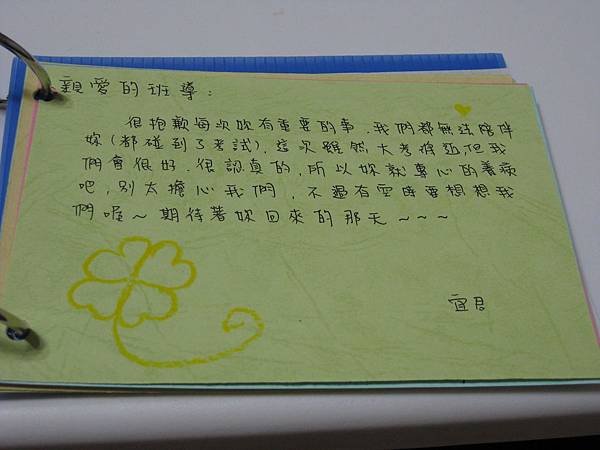 親愛的班導：
很抱歉每次妳有重要的事，我們都無法陪伴
妳（都碰到了考試），這次雖然大考將近但我
們會很好，很認真的，所以妳就專心的養病
吧，別太擔心我們，不過有空時要想想我
們喔～期待著妳回來的那天～～～
宜君